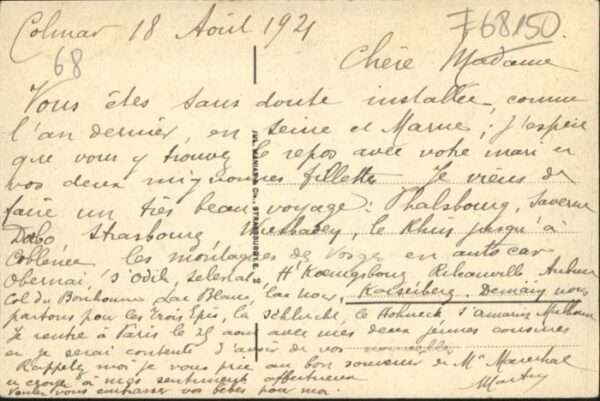 Colmar 18 Août 1921
F68150.
68
Chère Madame
Vous êtes sans doute installée, comme
l'an dernier, en Seine et Marne ; j'espère
que vous y trouvez le repos avec votre mari et
vos deux mignonnes fillettes Je viens de
faire un très beau voyage : Phalsbourg, Saverne
Dabo Strasbourg Wiesbaden, le Rhin jusqu'à
Coblence les montagnes des Vosges en auto car
Obernai, St Odile, Selestat, Ht Kœnigsbourg Ribeauvillé
Col du Bonhomme Lac Blanc, lac noir, Kaiseiberg. Demain nous
partons pour les Trois Epis, la Schlucht, le Hohneck St Amarin Mulhouse
Je rentre à Paris le 25 août avec mes deux jeunes cousines
et je serai contente d'avoir de vos nouvelles
Rappelez moi je vous prie au bon souvenir de Mr Marechal
et croyez à mes sentiments affectueux
Voulez vous embrasser vos bébés pour moi.
STRASBOURG